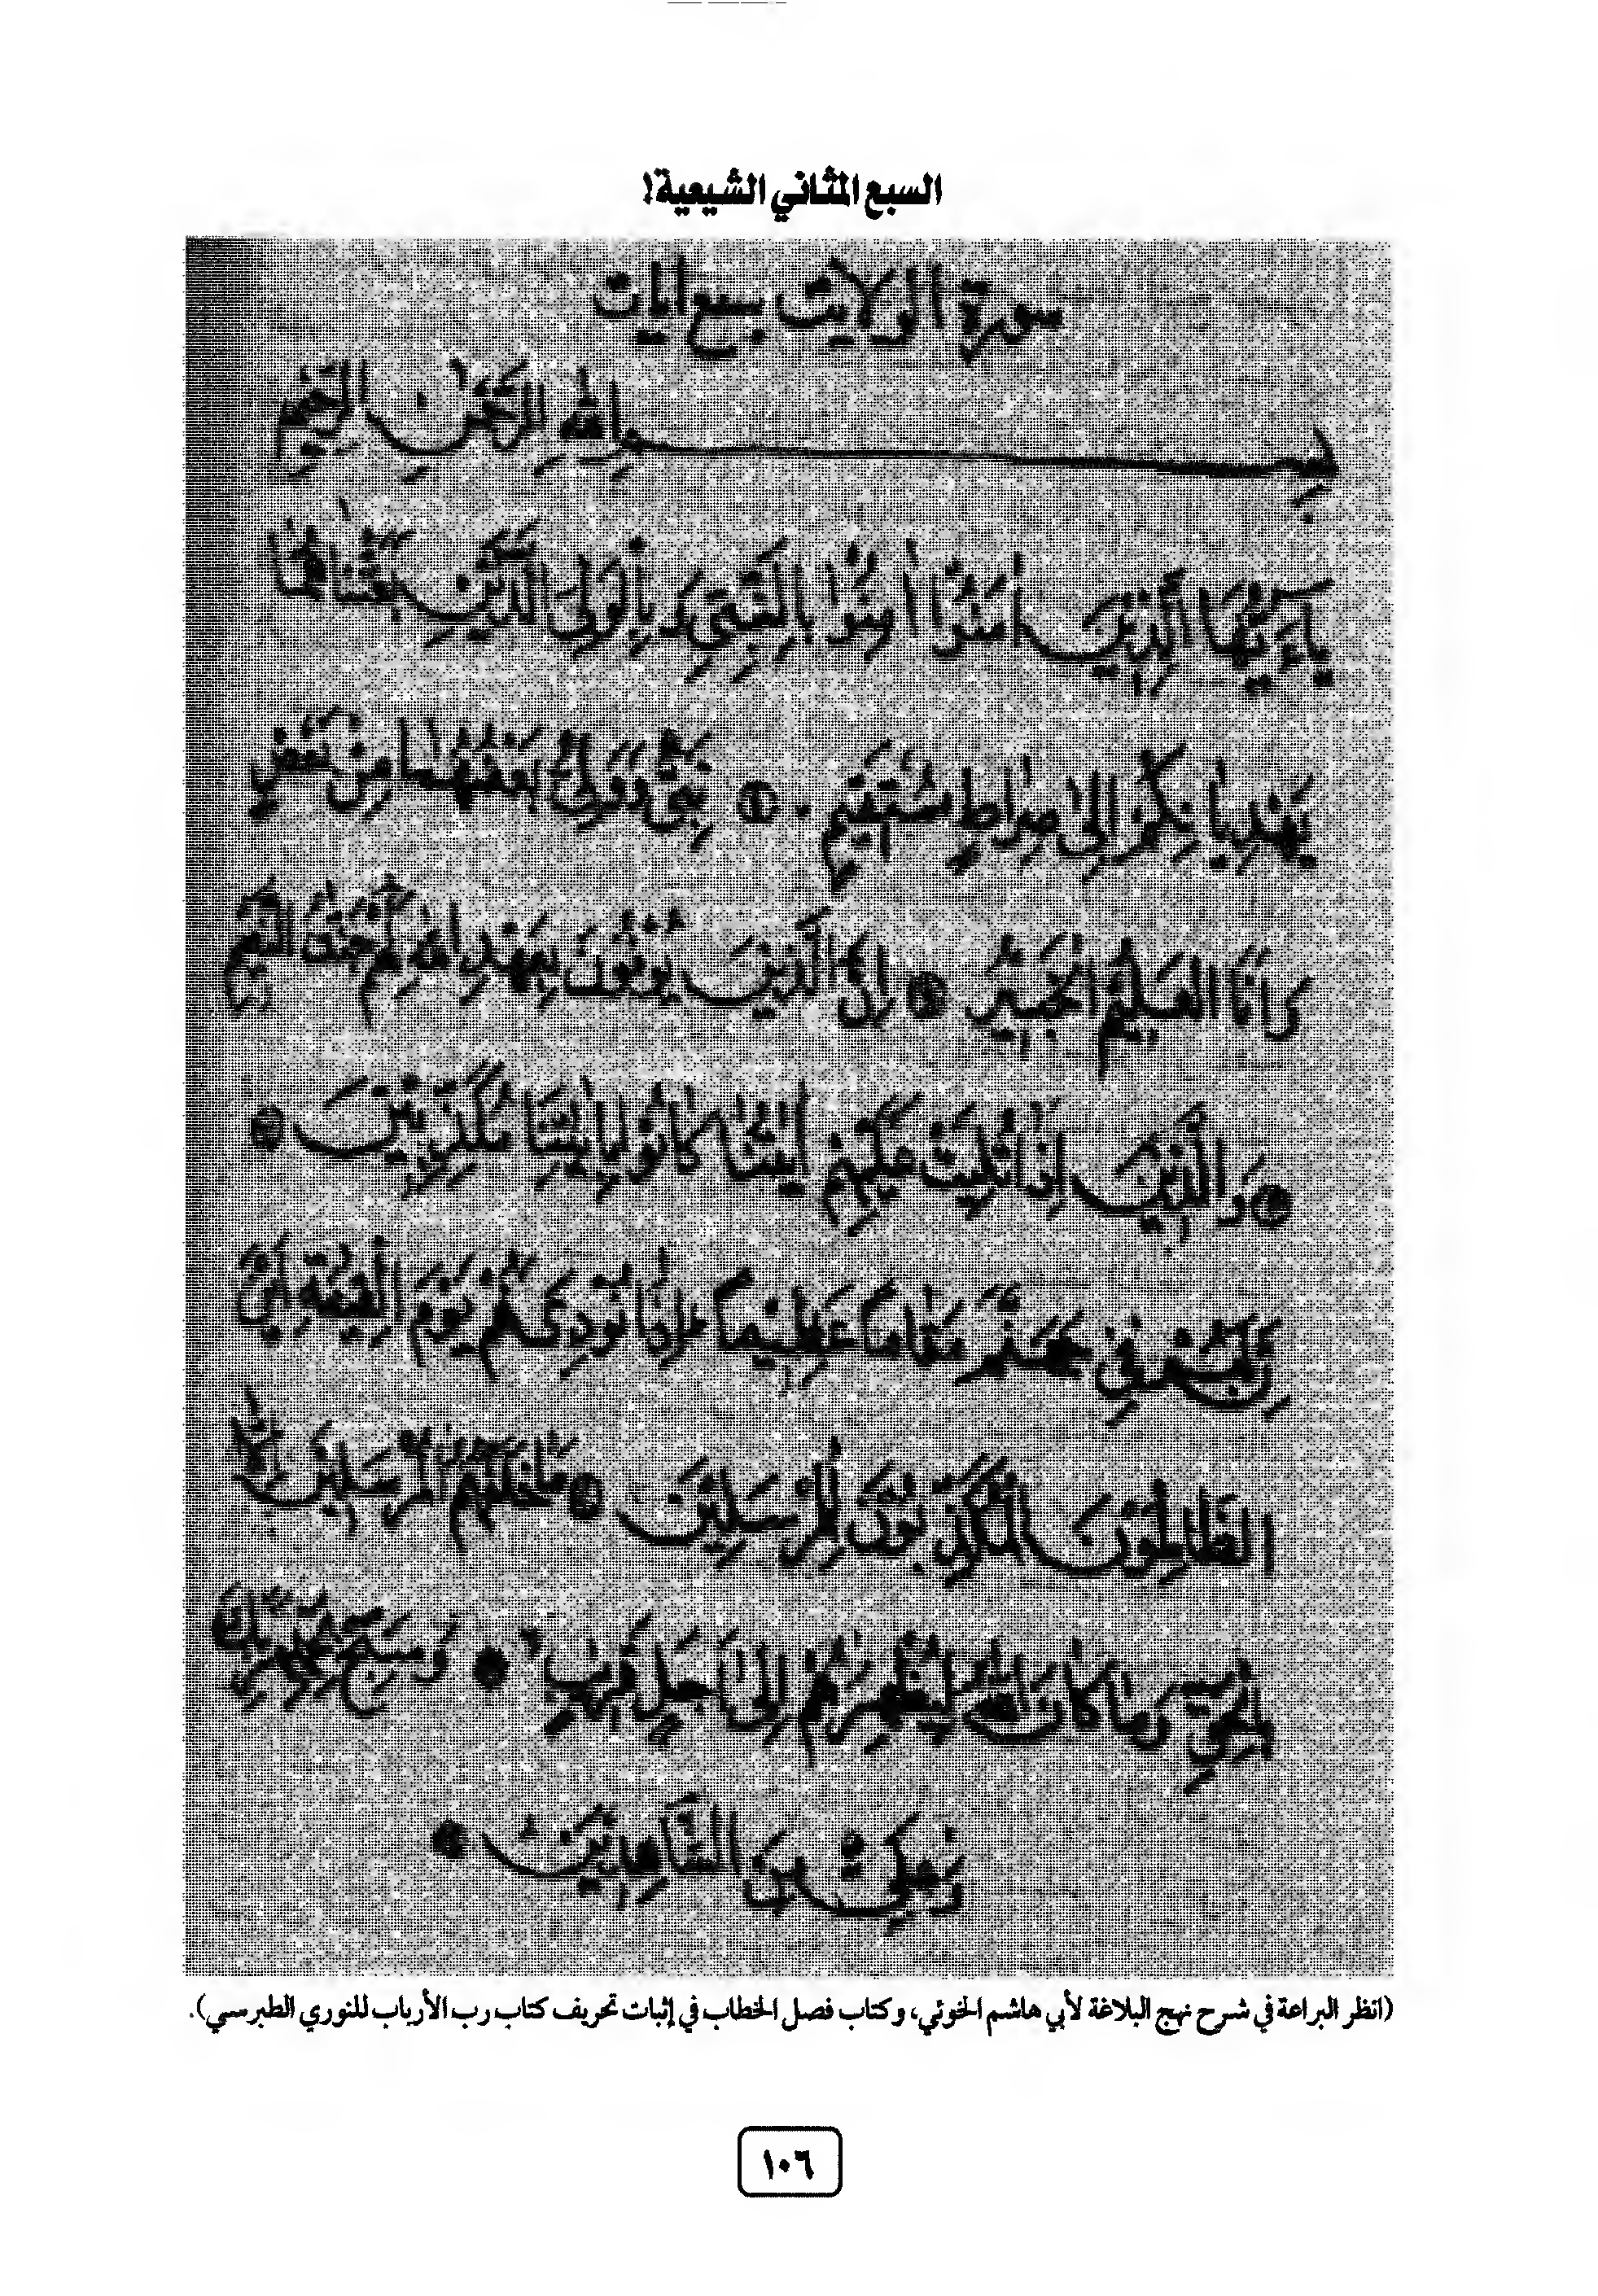 السبع المثاني الشيعية!
سورة الولايت سبع ايات
بسم الله الرحمن الرحيم
يآءَيُّهَا الَّذِينَ اٰمَنُوا اٰمِنُوا بِالنَّبِيِّ وَ بِالْوَلِيِّ الَّذَيْنِ بَعَثْنَاهُمَا
يَهْدِيَانِكُمْ اِلىٰ صِرَاطٍ مُسْتَقِيمٍ ۝١ نَبِيٌّ وَ وَلِيٌّ بَعْضُهُمَا مِنْ بَعْضٍ
وَ اَنَا العَلِيمُ الخَبِيرُ ۝٢ اِنَّ الَّذِينَ يُوفُونَ بِعَهْدِ اللهِ لَهُمْ جَنّٰتُ النَّعِيمِ
۝٣ وَ الَّذِينَ اِذَا تُلِيَتْ عَلَيْهِمْ اٰيٰتُنَا كَانُوا بِاٰيٰتِنَا مُكَذِّبِينَ ۝٤
اِنَّ لَهُمْ فِي جَهَنَّمَ مَقَامًا عَظِيمًا اِذَا نُودِيَ لَهُمْ يَوْمَ الْقِيٰمَةِ اَيْنَ
الظَّالِمُونَ الْمُكَذِّبُونَ لِلْمُرْسَلِينَ ۝٥ مَا خَلَفَهُمُ الْمُرْسَلِينَ اِلَّا
بِالْحَقِّ وَمَا كَانَ اللهُ لِيُظْهِرَهُمْ اِلىٰ اَجَلٍ قَرِيبٍ ۝٦ وَ سَبِّحْ بِحَمْدِ رَبِّكَ
وَ عَلِيٌّ مِنَ الشَّاهِدِينَ ۝٧
(انظر البراعة في شرح نهج البلاغة لأبي هاشم الخوئي، وكتاب فصل الخطاب في إثبات تحريف كتاب رب الأرباب للنوري الطبرسي).
١٠٦